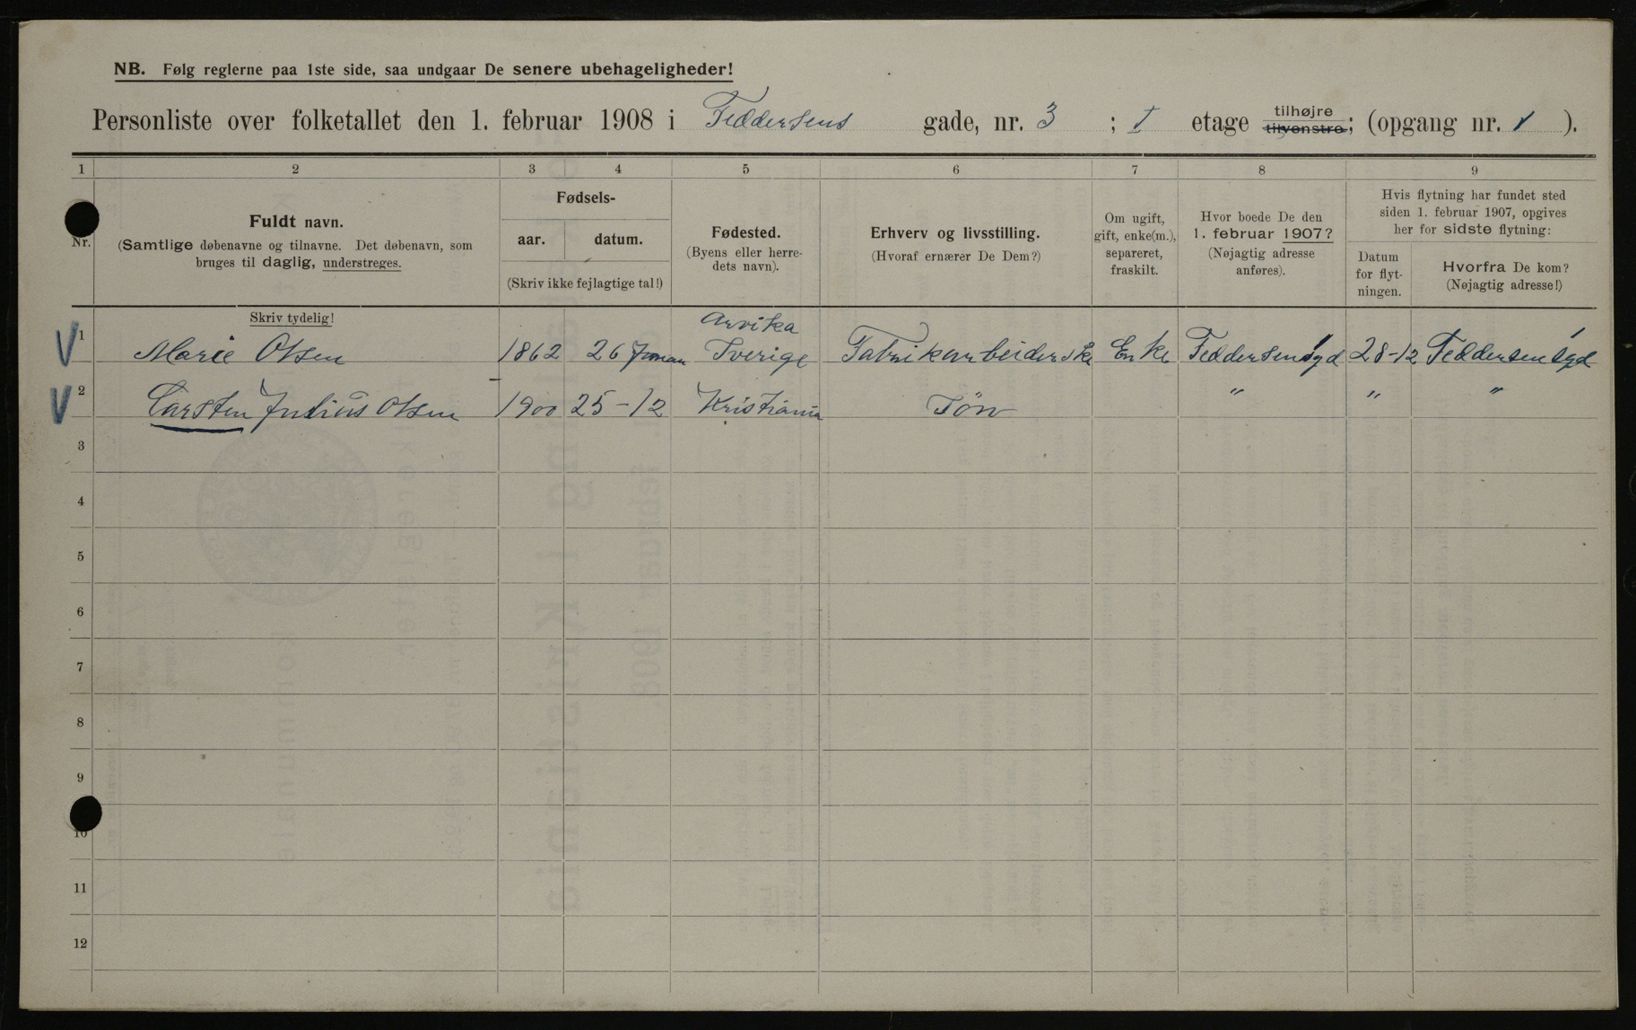 NB. Følg reglerne paa 1ste side, saa undgaar De senere ubehageligheder!
Personliste over folketallet den 1. februar 1908 i Feddersens gade, nr. 3 ; I etage tilhøjre tilvenstre; (opgang nr. 1 ).
1 2 3 4 5 6 7 8 9
Nr.
Fuldt navn.
(Samtlige døbenavne og tilnavne. Det døbenavn, som
bruges til daglig, understreges.
Fødsels-
aar. datum.
(Skriv ikke fejlagtige tal!)
Fødested.
(Byens eller herre-
dets navn).
Erhverv og livsstilling.
(Hvoraf ernærer De Dem?)
Om ugift,
gift, enke(m.),
separeret,
fraskilt.
Hvor boede De den
1. februar 1907?
(Nøjagtig adresse
anføres).
Hvis flytning har fundet sted
siden 1. februar 1907, opgives
her for sidste flytning:
Datum
for flyt-
ningen.
Hvorfra De kom?
(Nøjagtig adresse!)
Skriv tydelig!
1 Marie Olsen 1862 26 Arvika Sverige Fabrikarbeiderske Enke Feddersensgd 28-12 Feddersensgd
2 Carsten Julius Olsen 1900 25-12 Kristiania Sön " " "
3
4
5
6
7
8
9
10
11
12